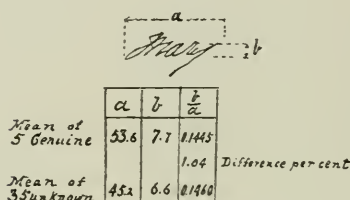 a
Mary b
a b b/a
Mean of
5 Genuine 53.6 7.7 0.1445
1.04 Difference per cent
Mean of
35 unknown 45.2 6.6 0.1460